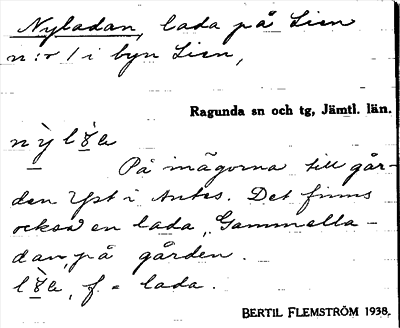 Nyladan, lada på Lien
n:r 1 i byn Lien,
Ragunda sn och tg, Jämtl. län.
På mägorna till går-
den Yst i Antes. Det finns
också en lada, Gammella-
dan, på gården.
f = lada.
BERTIL FLEMSTRÖM 1938.